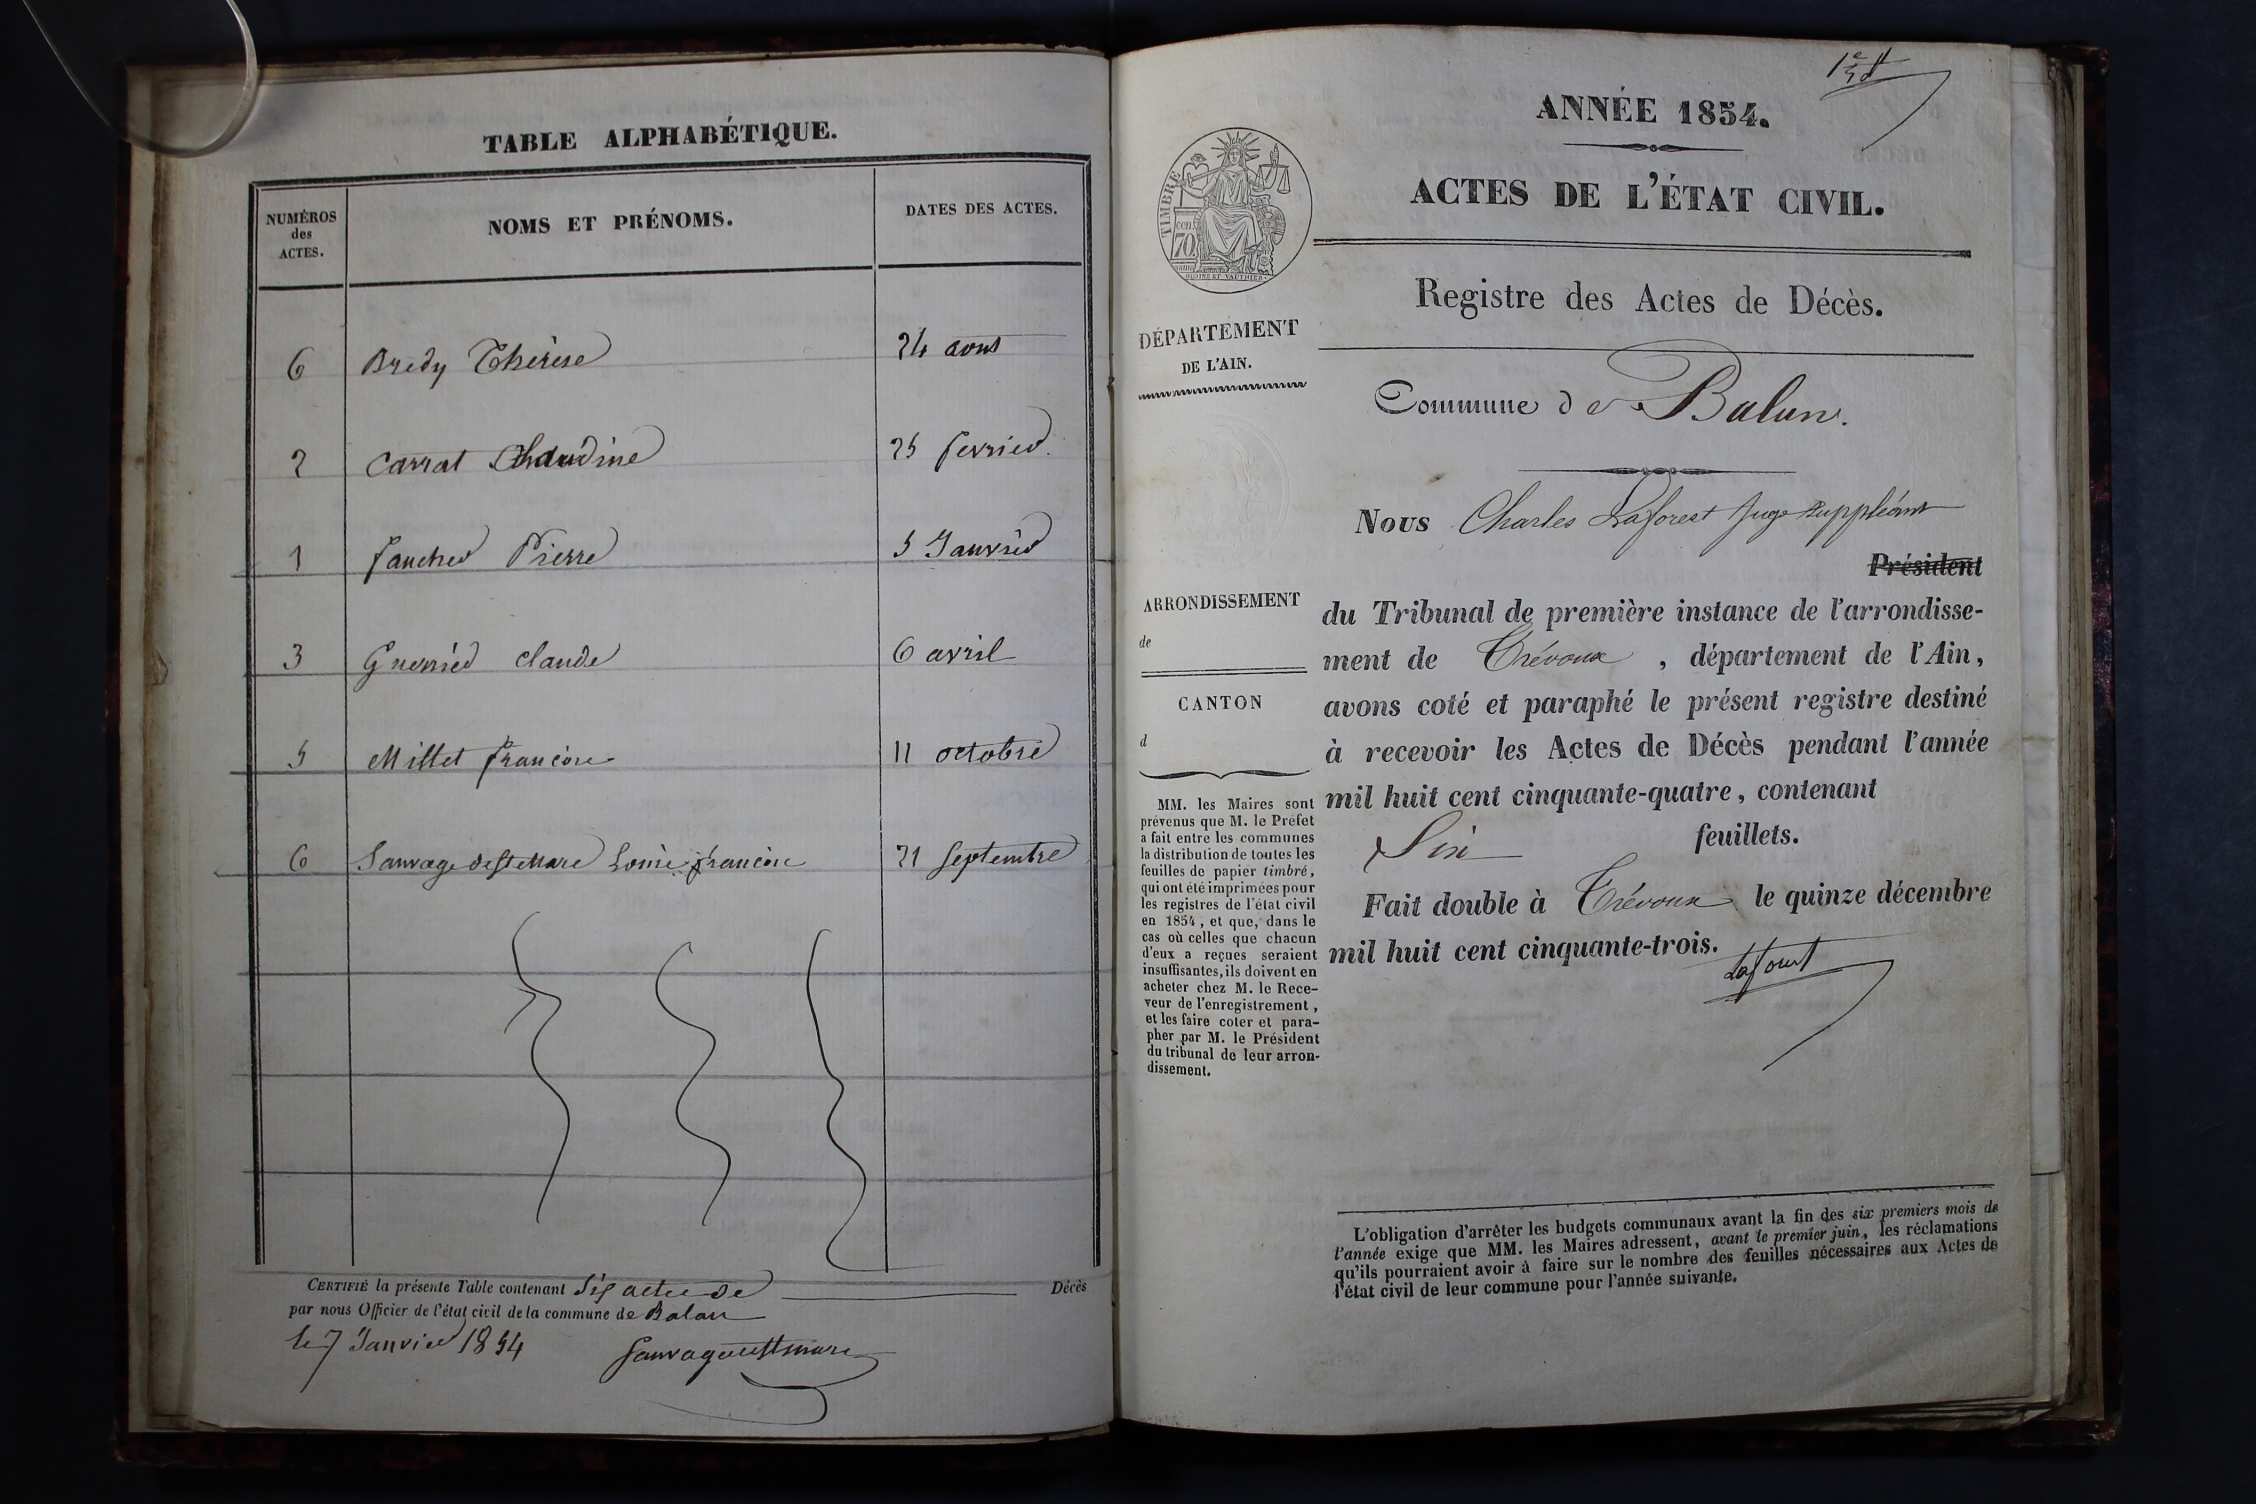 TABLE ALPHABÉTIQUE.
NUMÉROS
des
ACTES.
NOMS ET PRÉNOMS.
DATES DES ACTES.
6 Bredy Thérèse 24 aout
2 Carrat Claudine 25 fevrier.
1 faucher Pierre 5 Janvier
3 Guerrier Claude 6 avril
5 Millet françoise 11 octobre
6 Sauvage de St Mare Louise françoise 21 Septembre
CERTIFIÉ la présente Table contenant Six actes de Décès
par nous Officier de l'état civil de la commune de Balan
le 7 Janvier 1854
1er
ANNÉE 1854.
ACTES DE L'ÉTAT CIVIL.
TIMBRE
70
Registre des Actes de Décès.
DÉPARTEMENT
DE L'AIN.
Commune de Balan.
Nous Charles Laforest Juge suppléant
Président
ARRONDISSEMENT
de
CANTON
d
du Tribunal de première instance de l'arrondisse-
ment de Trévoux, département de l'Ain,
avons coté et paraphé le présent registre destiné
à recevoir les Actes de Décès pendant l'année
mil huit cent cinquante-quatre, contenant
Six feuillets.
Fait double à Trévoux le quinze décembre
mil huit cent cinquante-trois.
Laforest
MM. les Maires sont
prévenus que M. le Préfet
a fait entre les communes
la distribution de toutes les
feuilles de papier timbré,
qui ont été imprimées pour
les registres de l'état civil
en 1854, et que, dans le
cas où celles que chacun
d'eux a reçues seraient
insuffisantes, ils doivent en
acheter chez M. le Rece-
veur de l'enregistrement,
et les faire coter et para-
pher par M. le Président
du tribunal de leur arron-
dissement.
L'obligation d'arrêter les budgets communaux avant la fin des six premiers mois de
l'année exige que MM. les Maires adressent, avant le premier juin, les réclamations
qu'ils pourraient avoir à faire sur le nombre des feuilles nécessaires aux Actes de
l'état civil de leur commune pour l'année suivante.